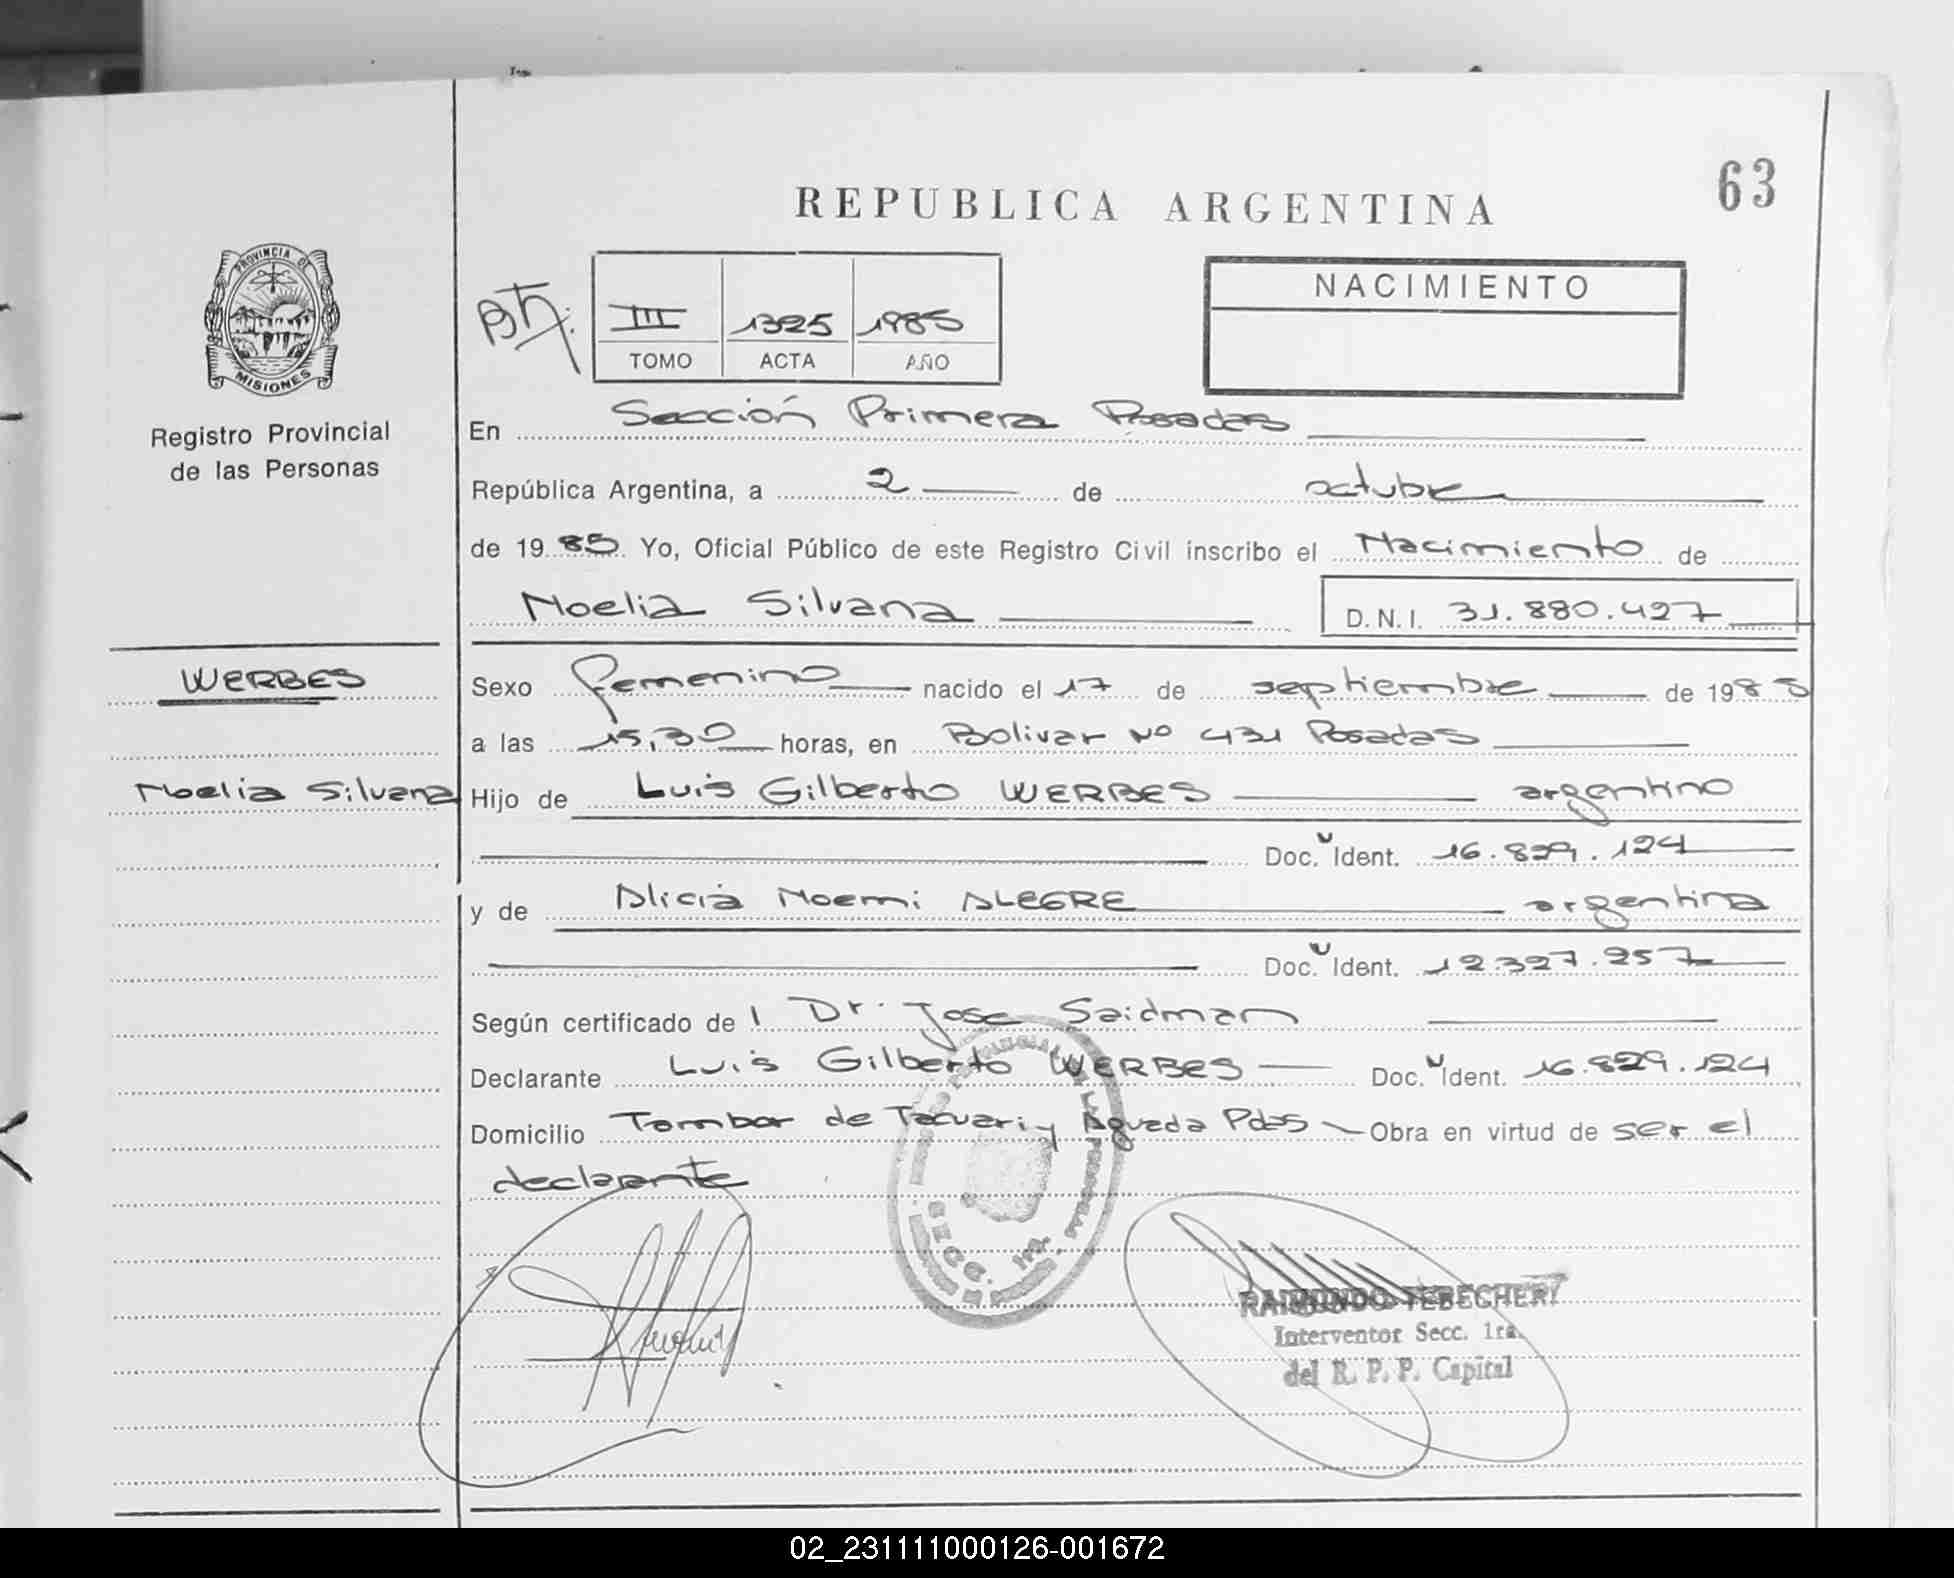 63
REPUBLICA ARGENTINA
PROVINCIA DE
MISIONES
Registro Provincial
de las Personas
III 1325 1985
TOMO ACTA AÑO
NACIMIENTO
En Sección Primera Posadas
República Argentina, a 2 de octubre
de 1985 Yo, Oficial Público de este Registro Civil inscribo el Nacimiento de
Noelia Silvana D.N.I. 31.880.427
WERBES
Sexo femenino nacido el 17 de septiembre de 1985
a las 15,30 horas, en Bolivar Nº 431 Posadas
Noelia Silvana
Hijo de Luis Gilberto WERBES argentino
Doc. Ident. 16.829.124
y de Alicia Noemi ALEGRE argentina
Doc. Ident. 12.327.257
Según certificado de l Dr. Jose Saidman
Declarante Luis Gilberto WERBES Doc. Ident. 16.829.124
Domicilio Tambor de Tacuari y Aguada Pdas Obra en virtud de ser el
declarante
SECC. 1ra.
RAIMUNDO TEBECHERY
Interventor Secc. 1ra.
del R. P. P. Capital
02_231111000126-001672